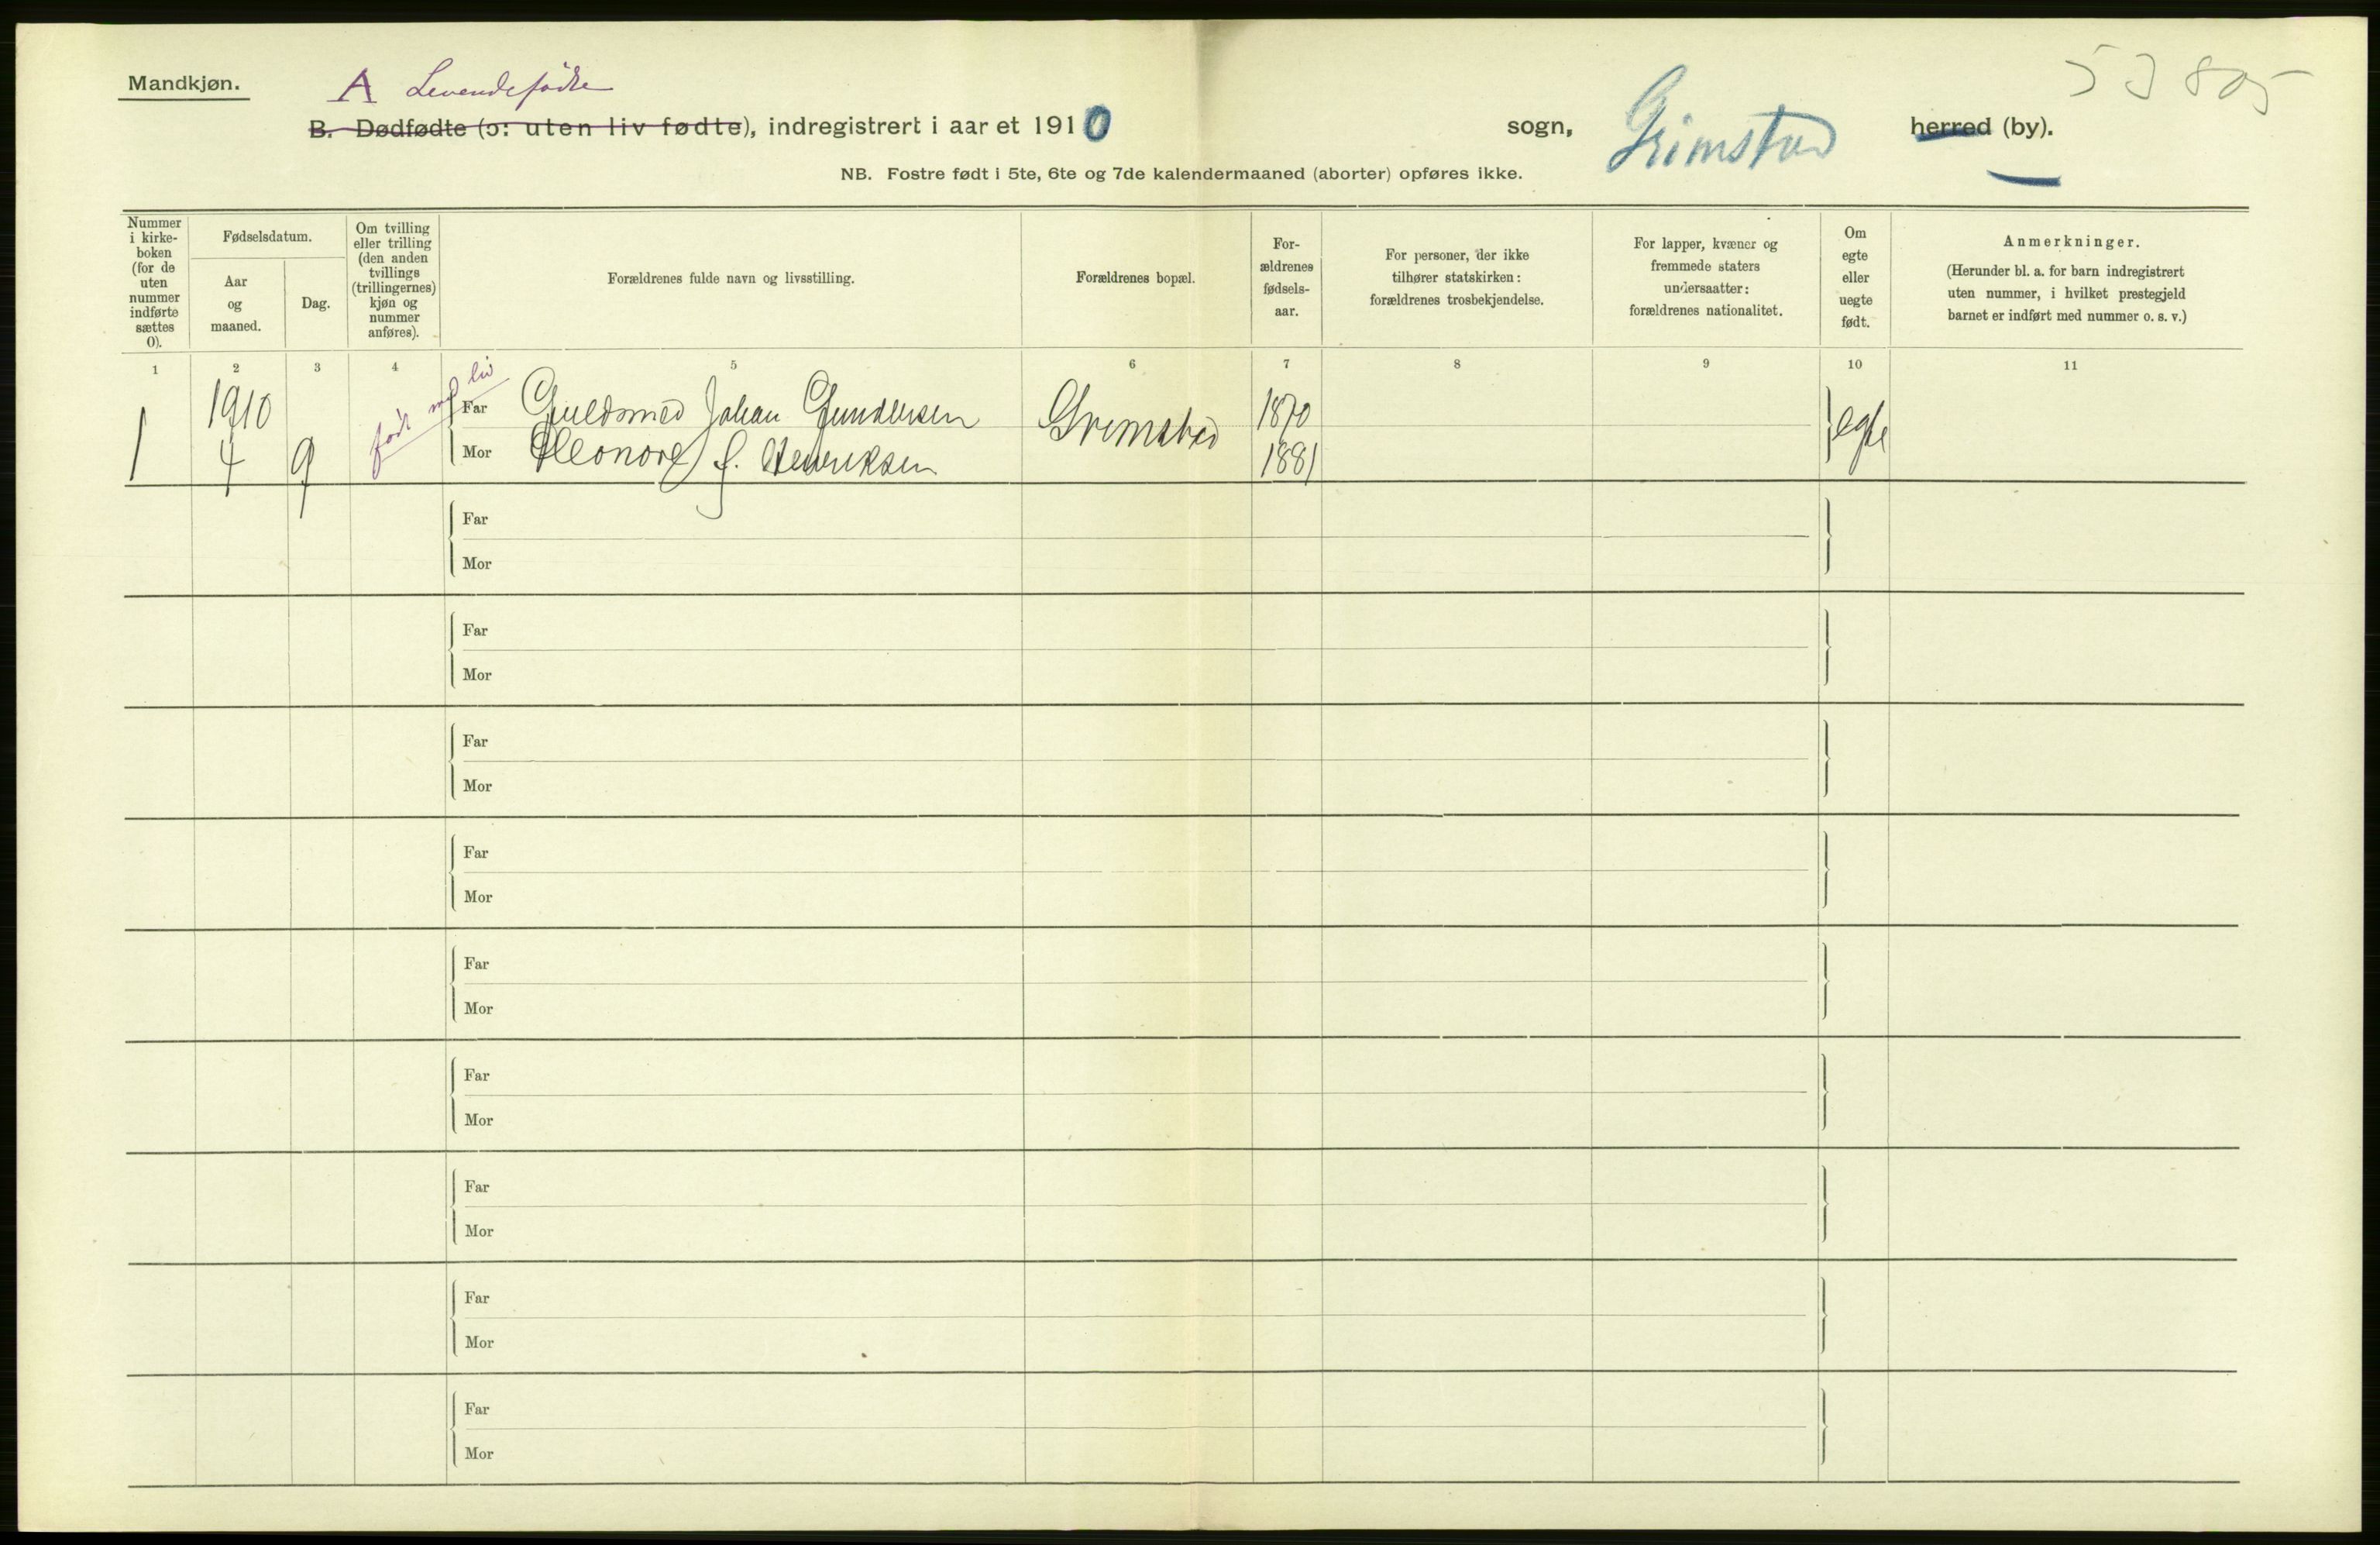 53805
Mandkjøn.
A Levendefødte
B. Dødfødte (ɔ: uten liv fødte), indregistrert i aaret 1910 sogn, Grimstad herred (by).
NB. Fostre født i 5te, 6te og 7de kalendermaaned (aborter) opføres ikke.
Nummer i kirke-boken (for de uten nummer indførte sættes 0).
Fødselsdatum.
Aar og maaned.
Dag.
Om tvilling eller trilling (den anden tvillings (trillingernes) kjøn og nummer anføres).
Forældrenes fulde navn og livsstilling.
Forældrenes bopæl.
For-ældrenes fødsels-aar.
For personer, der ikke tilhører statskirken: forældrenes trosbekjendelse.
For lapper, kvæner og fremmede staters undersaatter: forældrenes nationalitet.
Om egte eller uegte født.
Anmerkninger.
(Herunder bl. a. for barn indregistrert uten nummer, i hvilket prestegjeld barnet er indført med nummer o. s. v.)
1 2 3 4 5 6 7 8 9 10 11
født med liv
1 1910 4 9 Far Guldsmed Johan Gundersen Grimstad 1870 egte
Mor Eleonore f. Henriksen 1881
Far
Mor
Far
Mor
Far
Mor
Far
Mor
Far
Mor
Far
Mor
Far
Mor
Far
Mor
Far
Mor